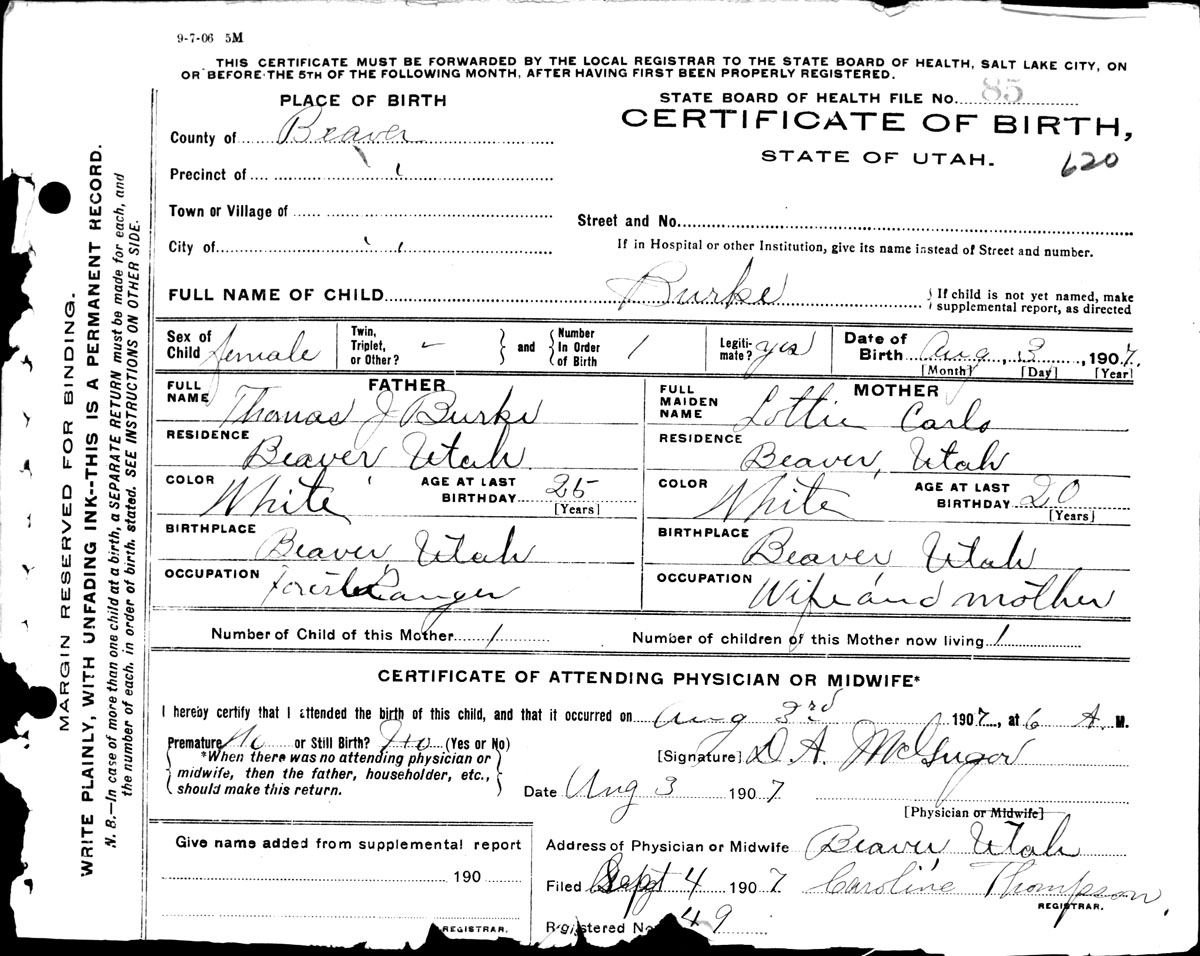 9-7-06 5M
THIS CERTIFICATE MUST BE FORWARDED BY THE LOCAL REGISTRAR TO THE STATE BOARD OF HEALTH, SALT LAKE CITY, ON
OR BEFORE THE 5TH OF THE FOLLOWING MONTH, AFTER HAVING FIRST BEEN PROPERLY REGISTERED.
PLACE OF BIRTH
STATE BOARD OF HEALTH FILE No. 85
CERTIFICATE OF BIRTH,
STATE OF UTAH.
620
County of Beaver
Precinct of " "
Town or Village of
City of " "
Street and No.
If in Hospital or other Institution, give its name instead of Street and number.
FULL NAME OF CHILD Burke
If child is not yet named, make
supplemental report, as directed
Sex of Child female Twin, Triplet, or Other? - and Number In Order of Birth 1 Legiti-mate? yes Date of Birth Aug, 3, 1907.
[Month] [Day] [Year]
FATHER
FULL NAME Thomas J Burke
RESIDENCE Beaver, Utah.
COLOR White AGE AT LAST BIRTHDAY 25
[Years]
BIRTHPLACE Beaver, Utah
OCCUPATION Forest Ranger
MOTHER
FULL MAIDEN NAME Lottie Carls
RESIDENCE Beaver, Utah
COLOR White AGE AT LAST BIRTHDAY 20
[Years]
BIRTHPLACE Beaver Utah
OCCUPATION Wife and mother
Number of Child of this Mother 1 Number of children of this Mother now living 1
CERTIFICATE OF ATTENDING PHYSICIAN OR MIDWIFE*
I hereby certify that I attended the birth of this child, and that it occurred on Aug 3rd 1907, at 6 A. M.
Premature No or Still Birth? No (Yes or No)
*When there was no attending physician or
midwife, then the father, householder, etc.,
should make this return.
[Signature] D. A. McGregor
Date Aug 3 1907
[Physician or Midwife]
Give name added from supplemental report
190
REGISTRAR.
Address of Physician or Midwife Beaver, Utah
Filed Sept 4 1907 Caroline Thompson,
REGISTRAR.
Registered No. 49
MARGIN RESERVED FOR BINDING.
WRITE PLAINLY, WITH UNFADING INK--THIS IS A PERMANENT RECORD.
N. B.—In case of more than one child at a birth, a SEPARATE RETURN must be made for each, and
the number of each, in order of birth, stated. SEE INSTRUCTIONS ON OTHER SIDE.